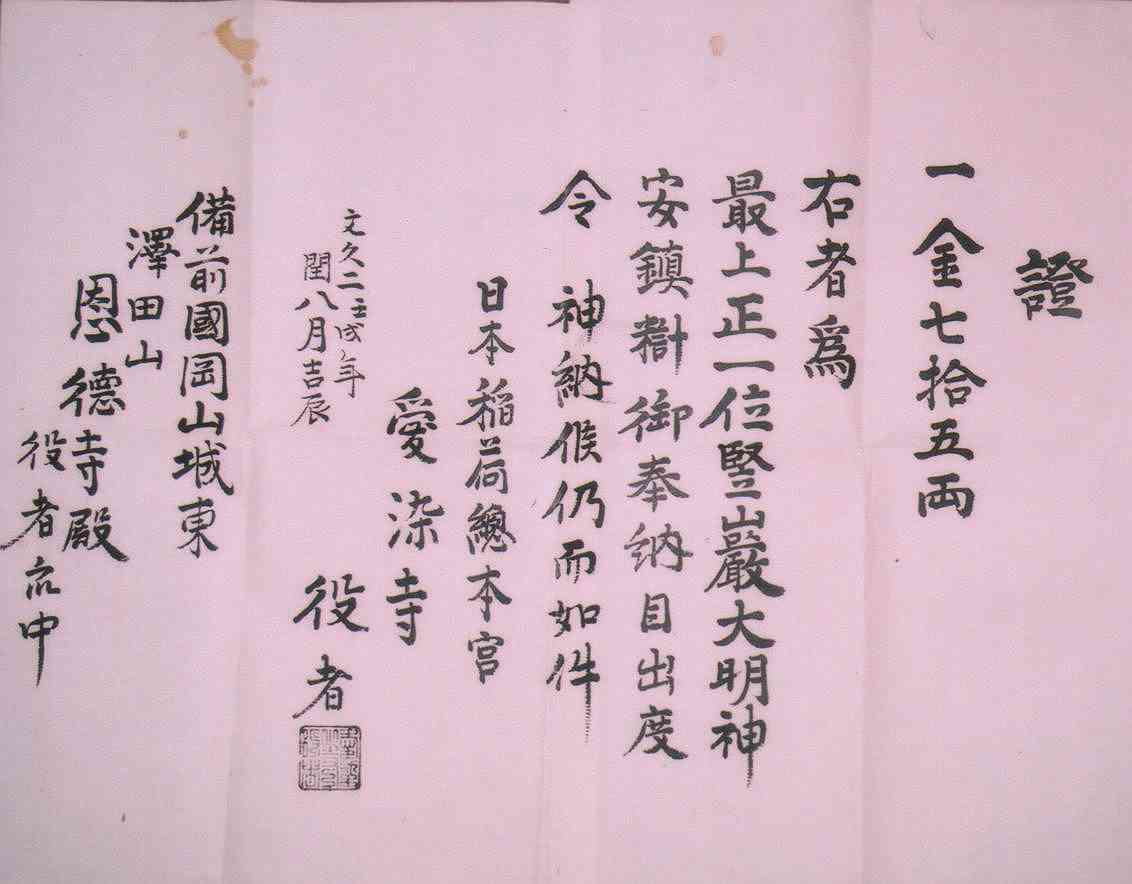 證
一金七拾五両
右者為
最上正一位豎巌大明神
安鎮 御奉納目出度
令 神納候仍而如件
日本稲荷總本宮
愛染寺
役者
文久二壬戌年
閏八月吉辰
備前國岡山城東
澤田山
恩德寺殿
役者衆中